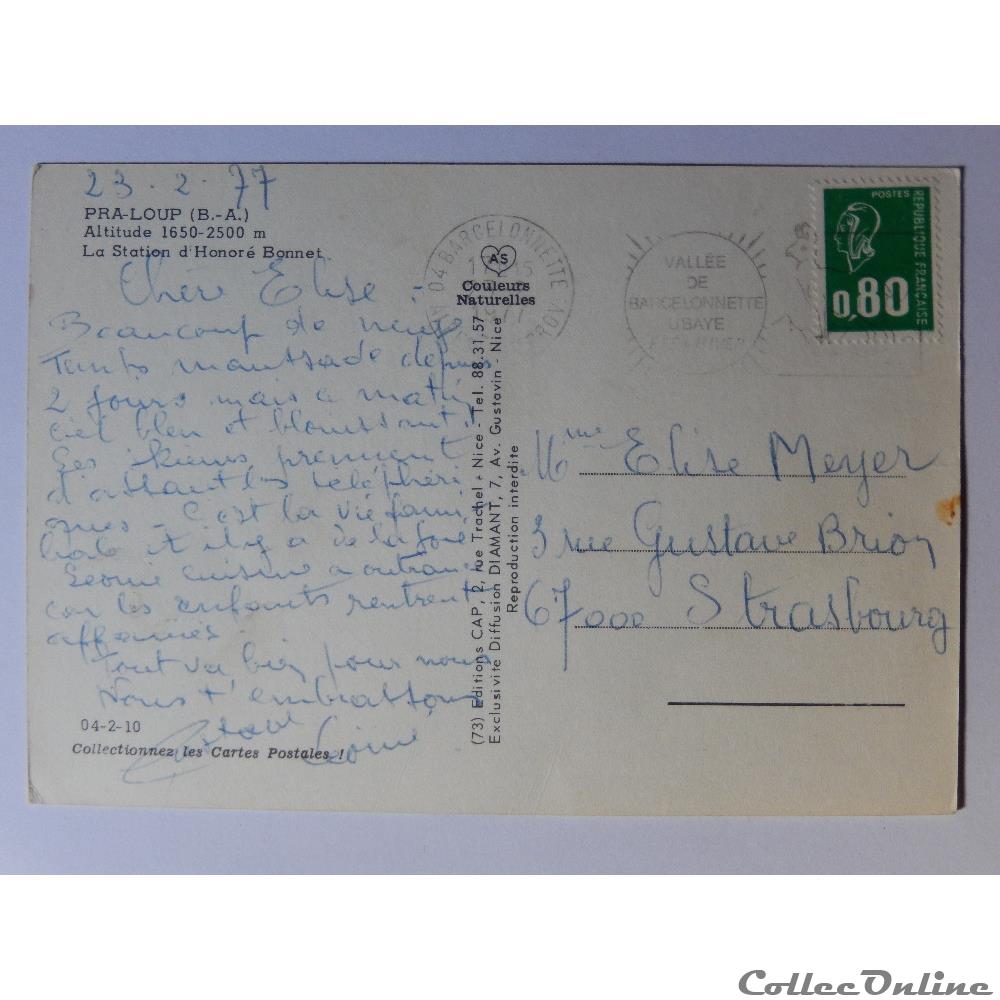 23.2.77
PRA-LOUP (B.-A.)
Altitude 1650-2500 m
La Station d'Honoré Bonnet
Chère Elise -
Beaucoup de neige
Temps maussade depuis
2 jours mais ce matin
ciel bleu et
Les skieurs prennent
d'assaut les téléphéri
ques - C'est la vie fami
liale et il y a de la joie
Léonie cuisine a outrance
car les enfants rentrent
affamés.
Tout va bien pour nous
Nous t'embrassons
Léonie
04-2-10
Collectionnez les Cartes Postales !
AS
Couleurs
Naturelles
(73) Editions CAP, 2, rue Trachel - Nice - Tel. 88.31.57
Exclusivite Diffusion DIAMANT, 7, Av. Gustavin - Nice
Reproduction interdite
04 BARCELONNETTE
1977
VALLÉE
DE
BARCELONNETTE
UBAYE
ÉTÉ HIVER
POSTES
REPUBLIQUE FRANÇAISE
0,80
Mme Elise Meyer
3 rue Gustave Brion
67000 Strasbourg
CollecOnline